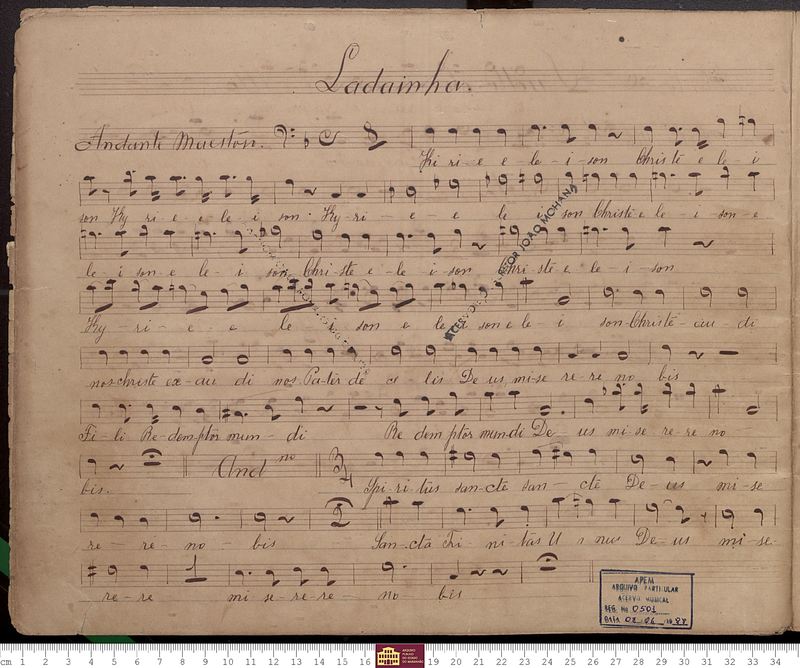 Ladainha.
Andante Maestoso.
Ki-ri-e e le-i-son Christe e le-i
son Ky-ri-e-e-le-i son. Ky-ri-e-e le-i son Christe e le-i-son-e
le-i son-e le-i son Chri-ste e-le-i-son Chri-ste e le-i-son
Ky-ri-e-e le-i son e le-i son e le-i son-Christe-au-di
nos christe ex-au di nos. Pa-ter de ce-lis De us, mi-se re-re no bis
Fi-li Re-demptor mun-di Re demptor mundi De-us mi-se-re-re no
bis. And.no 3/4 Spi-ri-tus san-cte san-cte De-us mi-se
re-re-no-bis San-cta Tri-ni-tas U-nus De-us mi-se-
re-re mi-se-re-re-no-bis
ACERVO PROFESSOR JOÃO MOHANA
APEM
ARQUIVO PARTICULAR
ACERVO MUSICAL
REG. No 0501
cm 1 2 3 4 5 6 7 8 9 10 11 12 13 14 15 16 19 20 21 22 23 24 25 26 27 28 29 30 31 32 33 34
ARQUIVO PÚBLICO DO ESTADO DO MARANHÃO